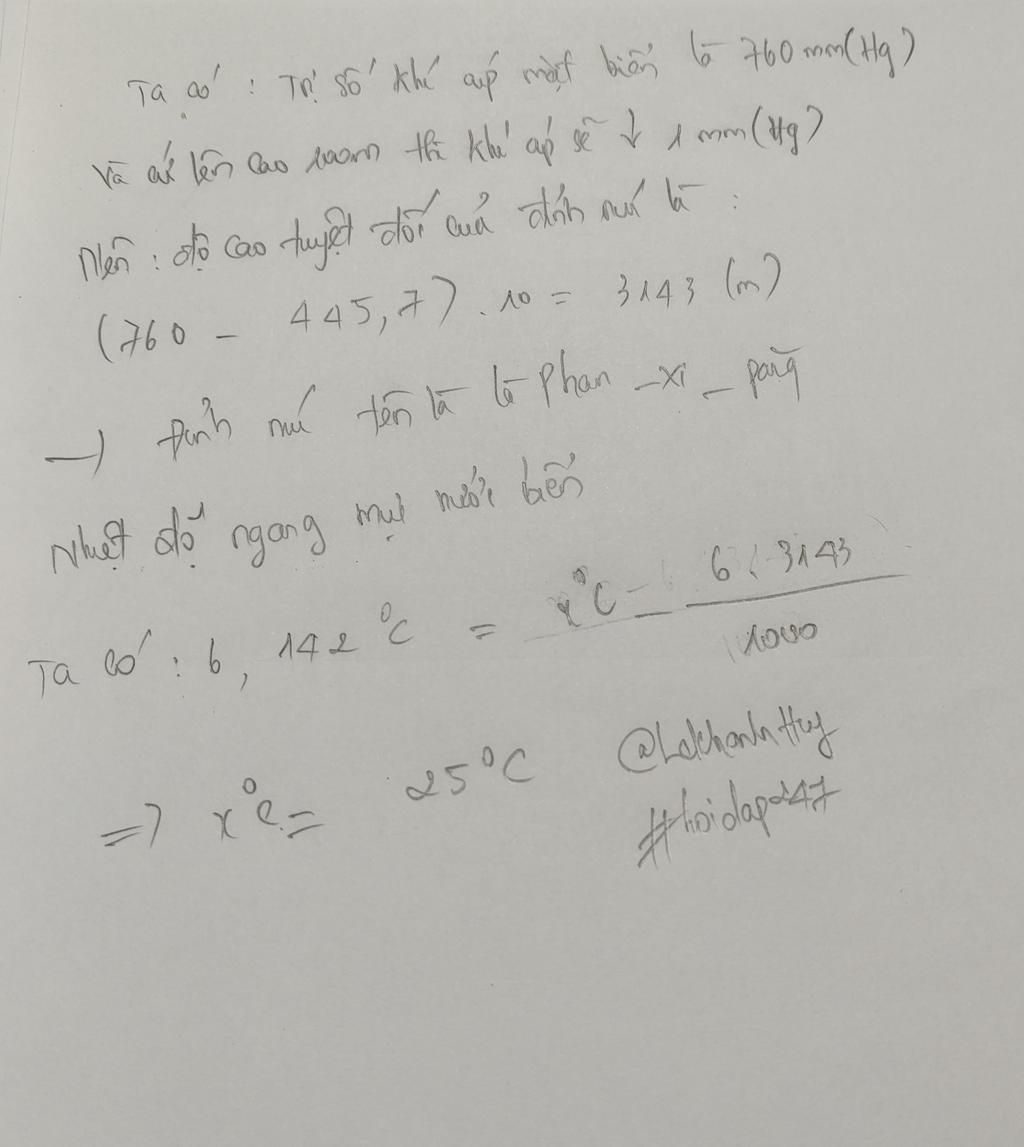 Ta có : Trị số khí áp mặt biển là 760 mm(Hg)
Và cứ lên cao 100m thì khí áp sẽ ↓ 1 mm(Hg)
Nên : độ cao tuyệt đối của đỉnh núi là :
(760 - 445,7) . 10 = 3143 (m)
→ Đỉnh núi tên là là Phan - xi - păng
Nhiệt độ ngang mực nước biển
Ta có : 6, 142 °C = x°C - 6 . 3143 / 1000
=> x°C = 25°C
@LeKhanhHuy
#hoidap247